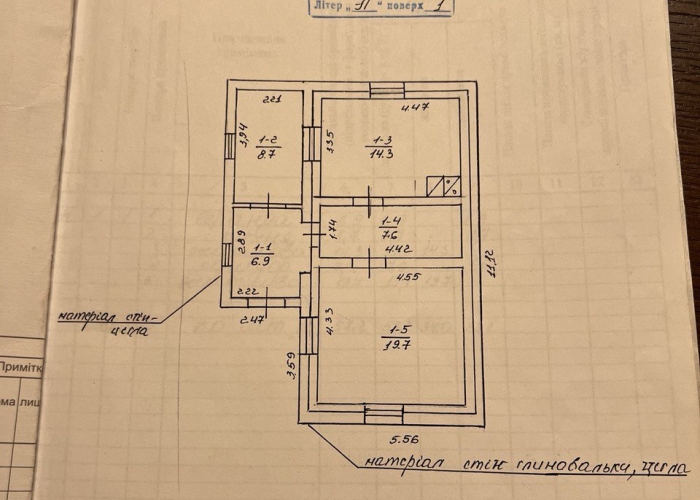 Літер „П“ поверх 1
2.21
4.47
3,94
1-2
8.7
3.35
1-3
14.3
2.89
1-1
6.9
1.74
1-4
7.6
4.42
11,12
4.55
2.22
2.47
матеріал стін-
цегла
4.33
1-5
19.7
3.59
5.56
матеріал стін глиновальки, цегла
Приміт
ма лиц